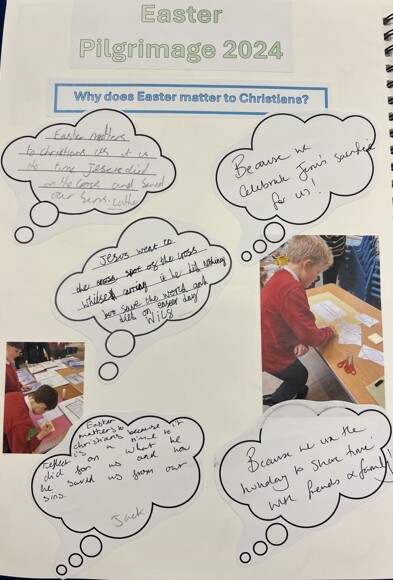 Easter
Pilgrimage 2024
Why does Easter matter to Christians?
Easter matters
to christians as it is
the time Jesus died
on the cross and saved
our sins.
Because we
celebrate Jesus's sacrifice
for us!
Jesus went to
the cross spot of the cross
whilst it he did nothing
save the world and
died on easter day
Wills
Easter
matters to because it
christians is a time to
reflect on what he
did for us and how
he saved us from our
sins.
Jack
Because we use the
holiday to share time
with friends & family!